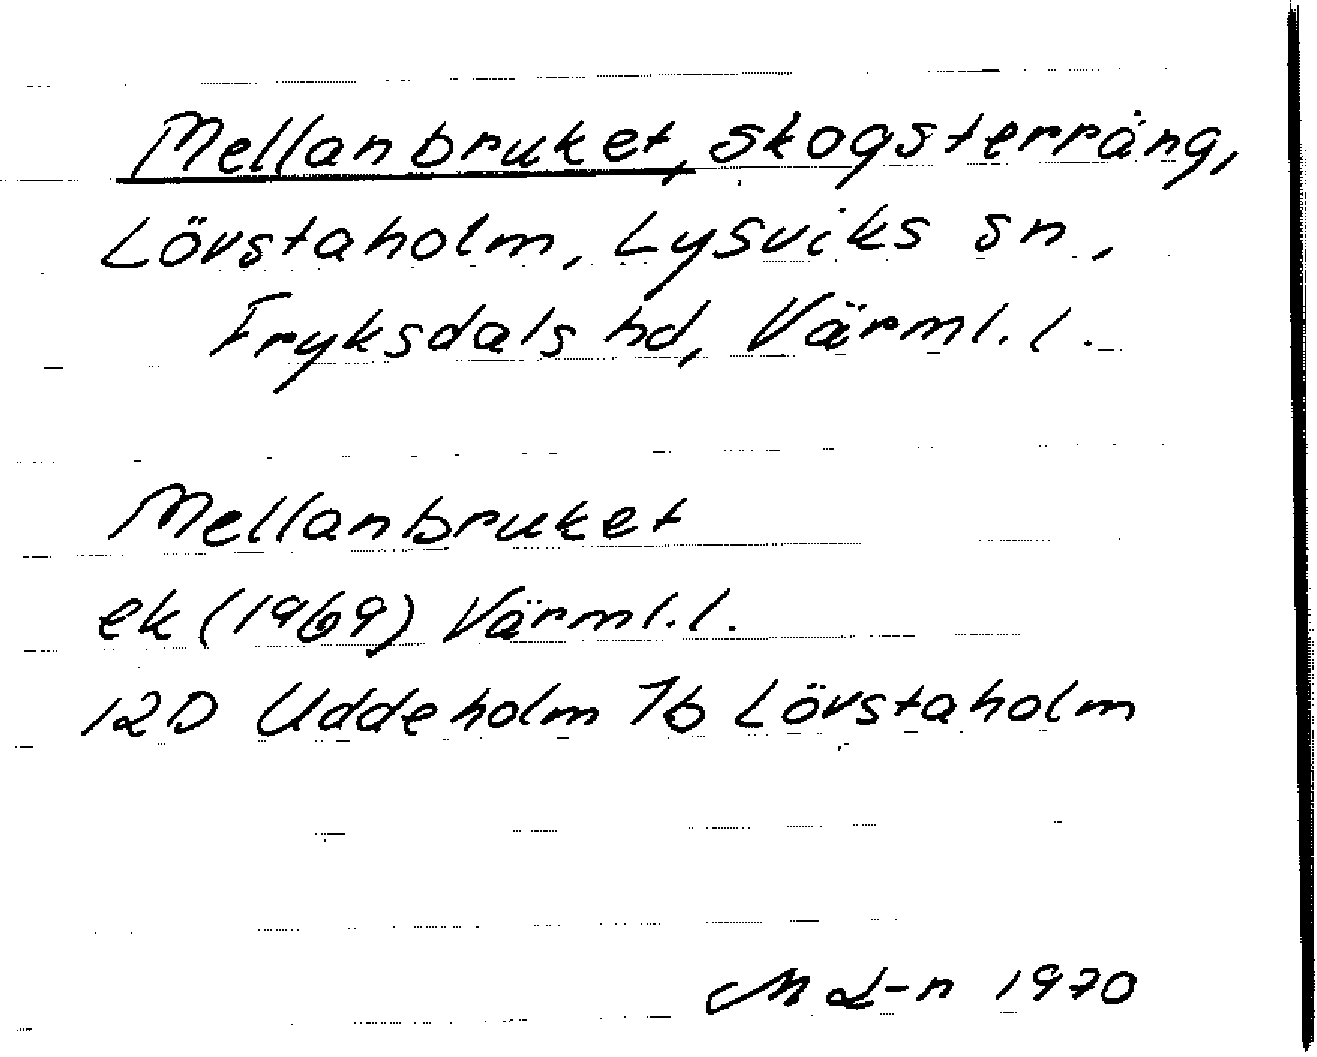 Mellanbruket, skogsterräng,
Lövstaholm, Lysviks sn,
Fryksdals hd, Värml.l.
Mellanbruket
ek (1969) Värml.l.
12D Uddeholm 7b Lövstaholm
M L-n 1970